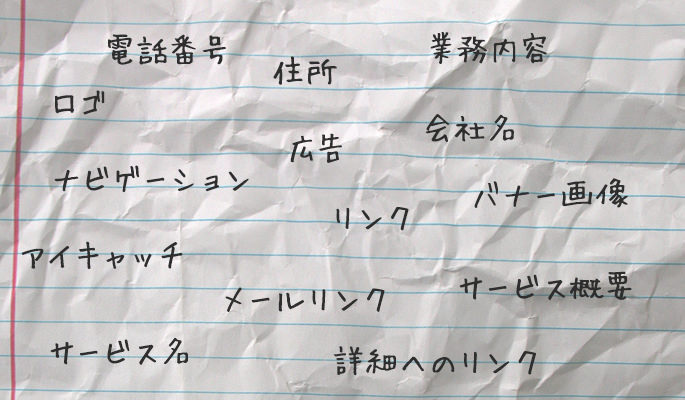 電話番号
住所
業務内容
ロゴ
会社名
広告
ナビゲーション
バナー画像
リンク
アイキャッチ
サービス概要
メールリンク
サービス名
詳細へのリンク